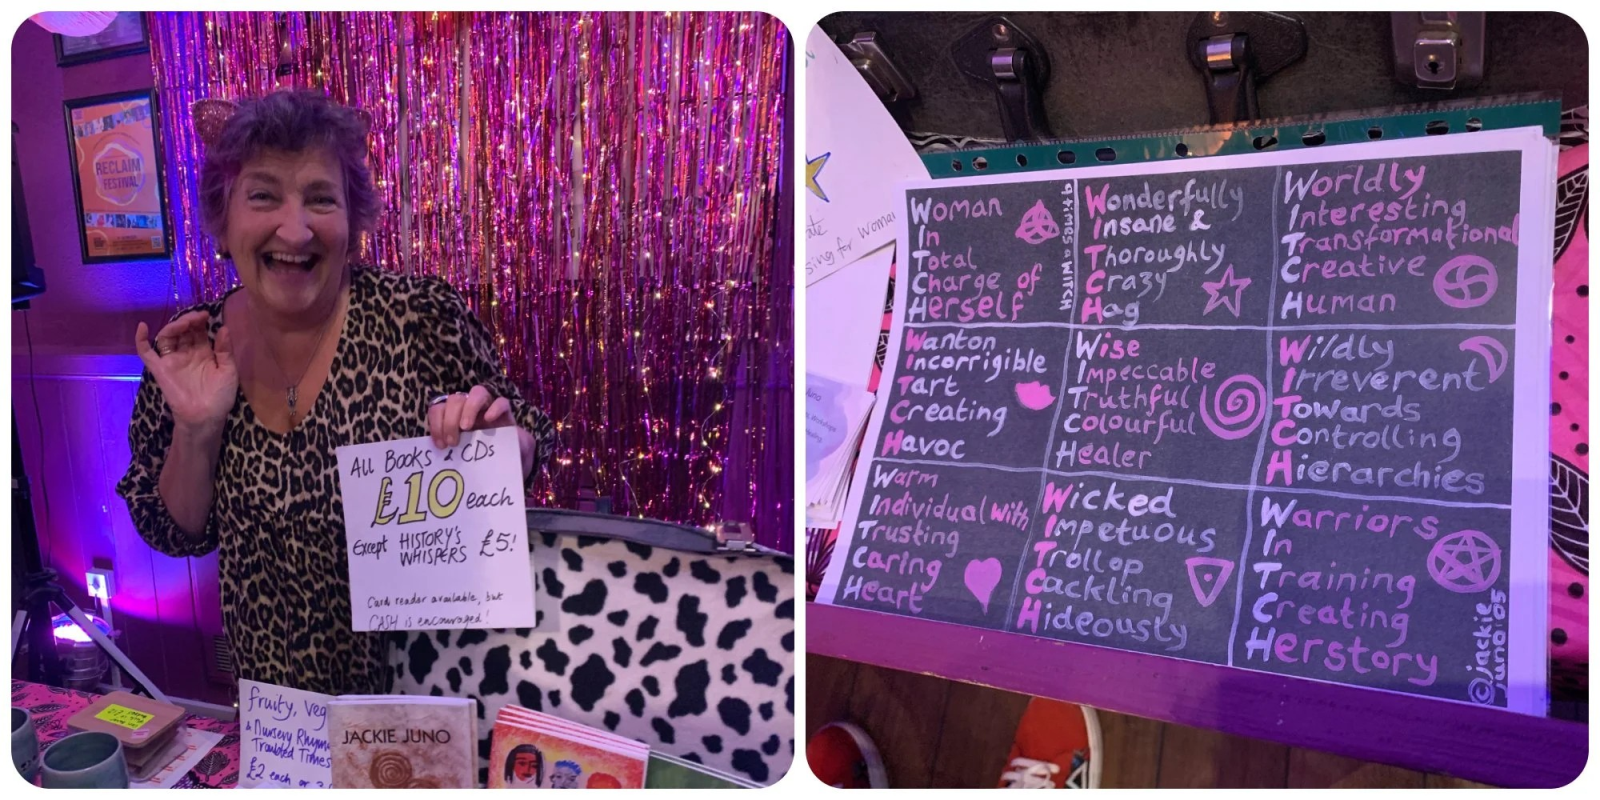 RECLAIM
FESTIVAL
ALL BOOKS & CDs
£10 each
Except HISTORY'S
WHISPERS £5!
Card reader available, but
CASH is encouraged!
fruity, veg
& Nursery Rhym
Troubled Times
£2 each or 3
JACKIE JUNO
sing for Woman
Woman
In
Total
Charge of
Herself
9 times a WITCH
Wonderfully
Insane &
Thoroughly
Crazy
Hag
Worldly
Interesting
Transformational
Creative
Human
Wanton
Incorrigible
Tart
Creating
Havoc
Wise
Impeccable
Truthful
Colourful
Healer
Wildly
Irreverent
Towards
Controlling
Hierarchies
Warm
Individual with
Trusting
Caring
Heart
Wicked
Impetuous
Trollop
Cackling
Hideously
Warriors
In
Training
Creating
Herstory
© jackie
juno '05